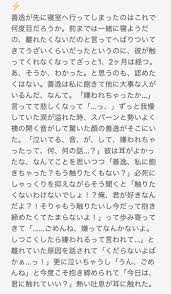 善逸が先に寝室へ行ってしまったのはこれで
何度目だろうか。前までは一緒に寝ようだ
の、離れたくないだのと言ってへばりついて
きてうざいくらいだったというのに、彼が触っ
てくれなくなってざっと1、2ヶ月は経つ。
あ、そうか、わかった。と思うのも、認めた
くはない。善逸は私に飽きて他に大事な人が
いるんだ、なんて。「嫌われちゃったか…」
言ってて悲しくなって「…っ、」ずっと我慢
していた涙が溢れた時、スパーンと勢いよく
襖の開く音がして驚いた顔の善逸がそこにい
た。「泣いてる、音、が、して、嫌われちゃ
ったって、何、何の話…?」彼は耳がよかっ
たな、なんてことを思いつつ「善逸、私に飽
きちゃった?もう触りたくもない?」必死に
しゃっくりを抑えながらそう聞くと「触りた
くないわけないでしょ!?俺、君が好きなん
だよ!?そりゃもう触りたいし今だって抱き
締めたくてたまらないよ!」って歩み寄って
きて「……ごめんね、嫌ってなんかないよ。
しつこくしたら嫌われるって言われて…」と
離れていた原因を話されて「くだらないよば
かぁ…っ!」更に泣いちゃうし「うん、ごめ
んね」と今度こそ抱き締められて「今日は、
君に触れていい?」熱い吐息が耳に触れた。